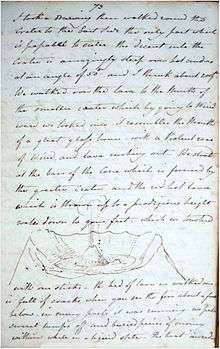 73
took a drawing then walked round the
Crater to the East Side the only part which
is passable to enter the descent into the
Crater is amazingly steep was but and as
at an angle of 50° and I think about 200 ft
We walked over the lava to the Mouth of
the smaller crater which by going to Wind
ward we looked into it resembles the Mouth
of a great glass house with a violent roar
of Wind and lava rushing out We stood
at the base of the Cone which is formed by
the greater Crater and the red hot lava
which is thrown up to a prodigious height
rolls down to your feet which we touched
with our sticks the bed of lava we walked over
is full of cracks when you see the fire about a foot
below in many parts it was running we put
several lumps of and buried pieces of money
within while in a liquid state the heat